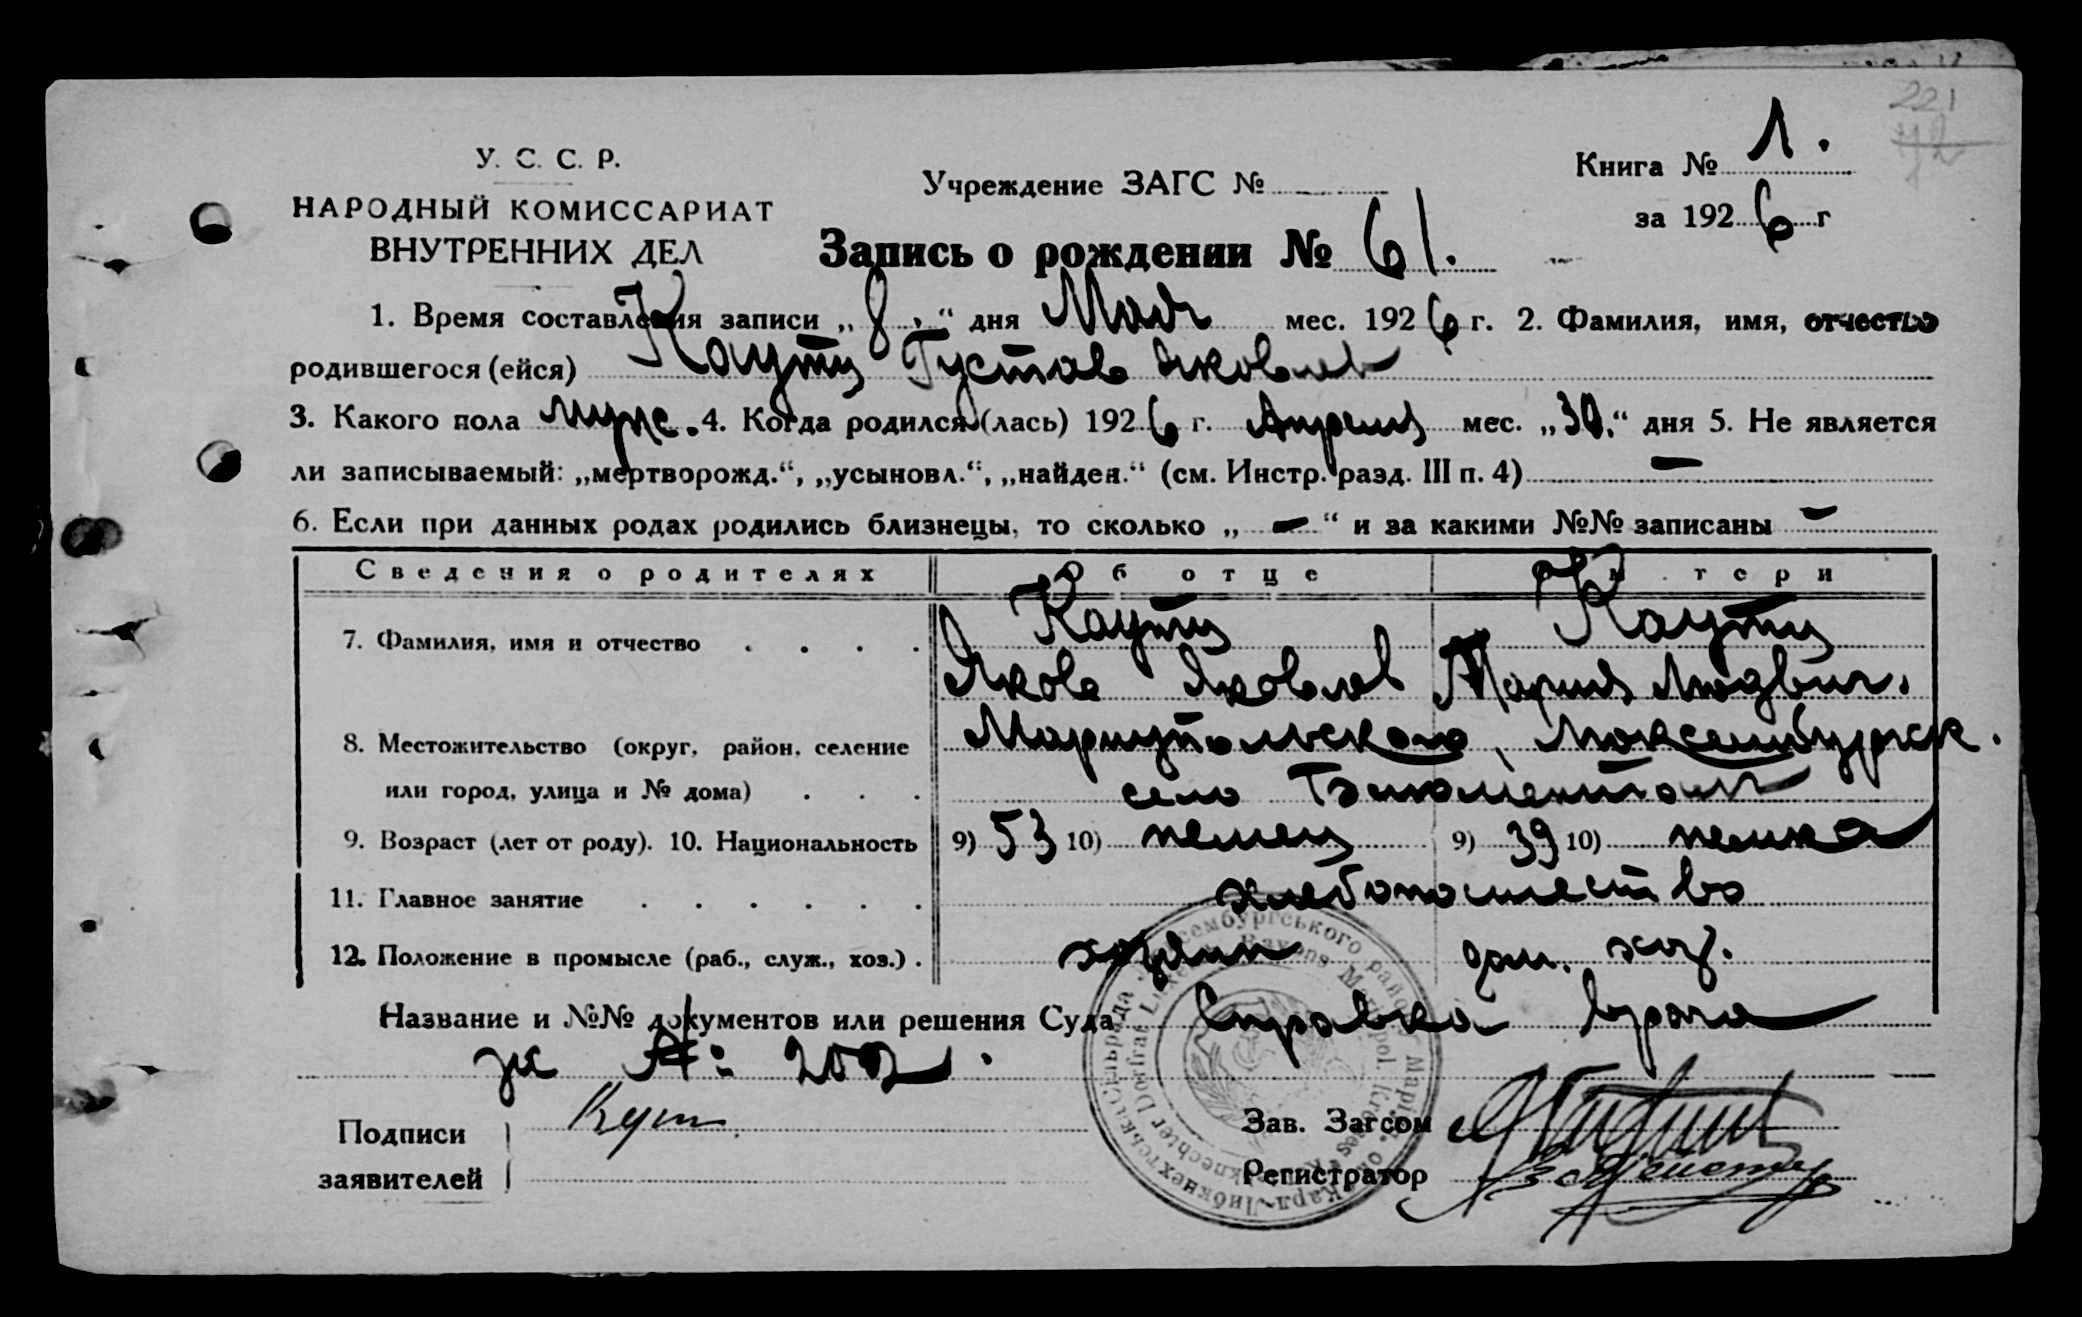 221
72
У. С. С. Р.
НАРОДНЫЙ КОМИССАРИАТ
ВНУТРЕННИХ ДЕЛ
Учреждение ЗАГС №
Книга № 1.
за 1926 г
Запись о рождении № 61.
1. Время составления записи „8.“ дня Мая мес. 1926 г. 2. Фамилия, имя, отчество
родившегося (ейся) Каутц Густав Яковлев
3. Какого пола муж. 4. Когда родился (лась) 1926 г. Апреля мес. „30.“ дня 5. Не является
ли записываемый: „мертворожд.“, „усыновл.“, „найден.“ (см. Инстр. разд. III п. 4) —
6. Если при данных родах родились близнецы, то сколько „ — “ и за какими №№ записаны —
Сведения о родителях Об отце О матери
7. Фамилия, имя и отчество . . . . Каутц Каутц
Якова Яковлев Мария Людвиг.
8. Местожительство (округ, район, селение Мариупольского, Люксембургск.
или город, улица и № дома) . . . село
9. Возраст (лет от роду). 10. Национальность 9) 53 10) немец 9) 39 10) немка
11. Главное занятие . . . . . . хлебопашество
12. Положение в промысле (раб., служ., хоз.) . хозяин дом. хоз.
Название и №№ документов или решения Суда Справка врача
за №: 202.
Подписи
заявителей
Зав. Загсом
Регистратор